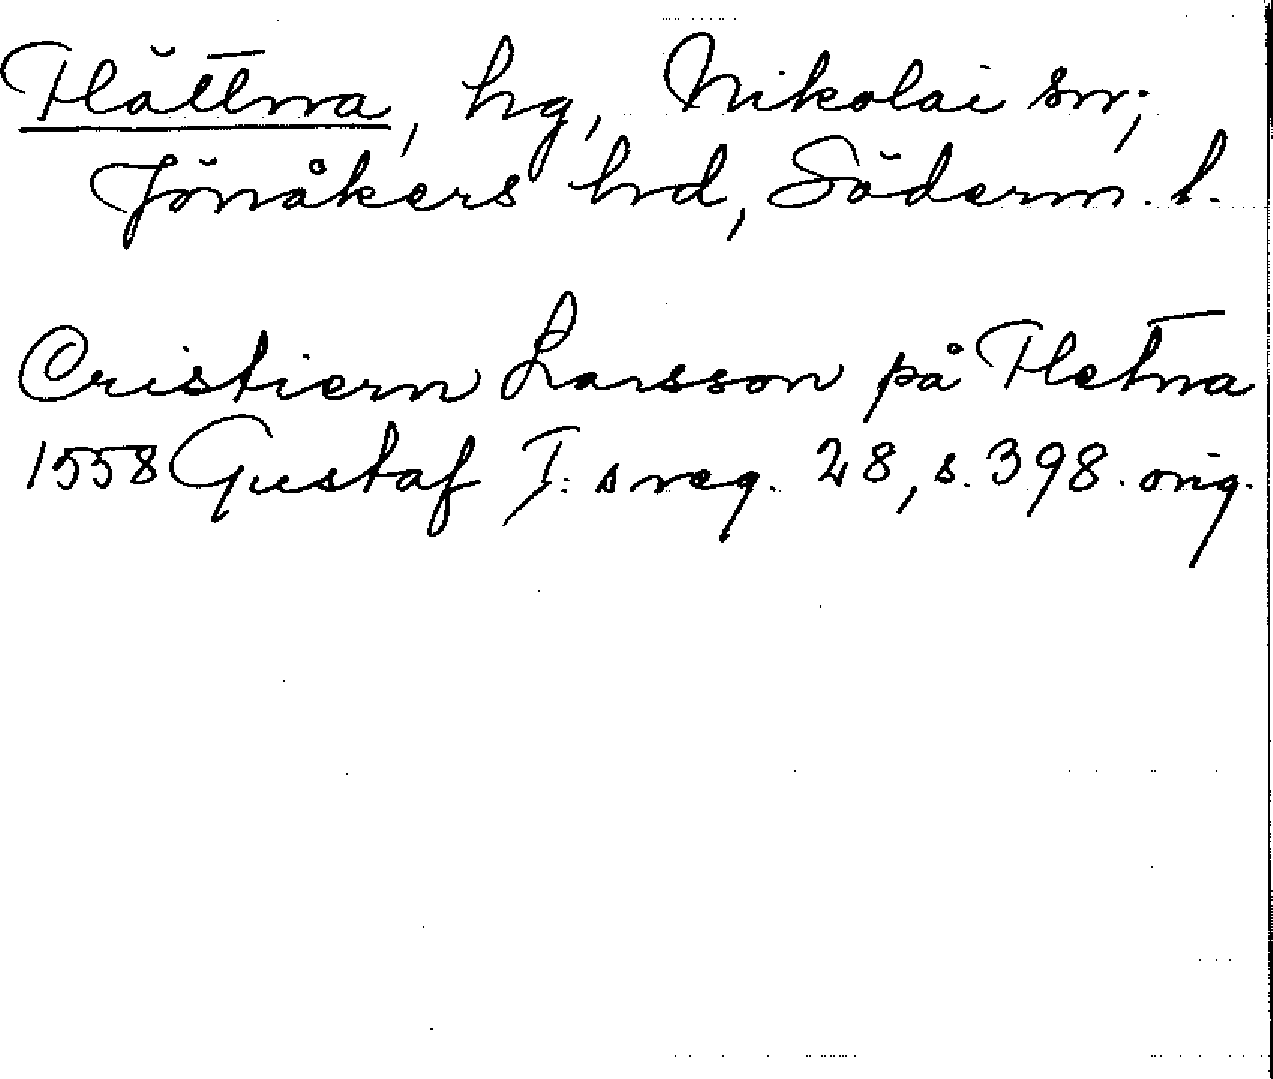 Flättna, hg, Nikolai sn;
Jönåkers hd, Söderm. l.
Cristiern Larsson på Fletna
1558 Gustaf I:s reg. 28, s. 398. orig.